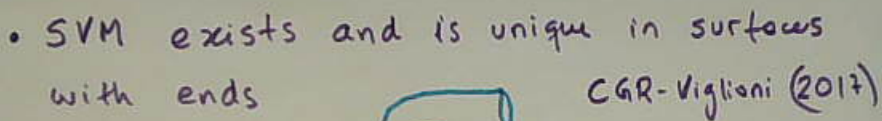 • SVM exists and is unique in surfaces
with ends CGR-Viglioni (2017)